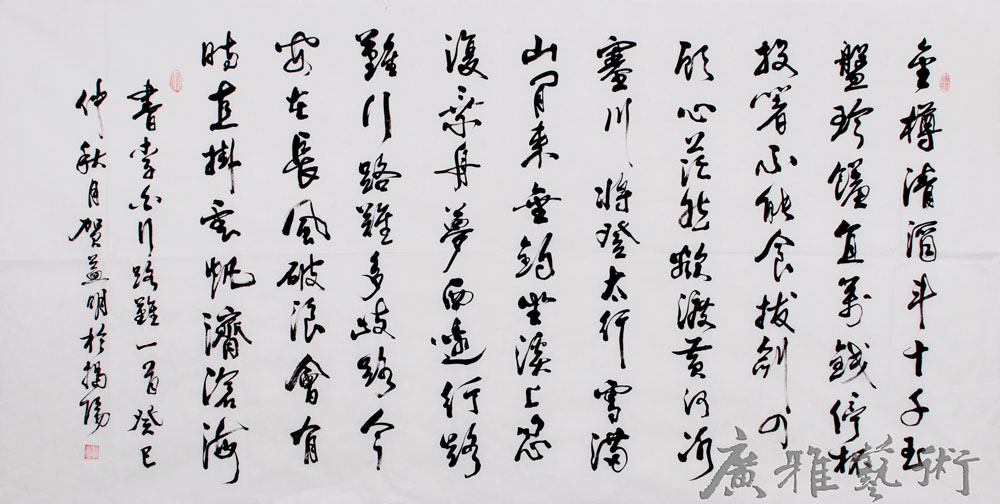 金樽清酒斗十千玉
盤珍饈直萬錢停杯
投箸不能食拔劍四
顧心茫然欲渡黃河冰
塞川將登太行雪滿
山閒來垂釣坐溪上忽
復乘舟夢西邊行路
難行路難多歧路今
安在長風破浪會有
時直掛雲帆濟滄海
書李白行路難一首癸巳
仲秋月賀益明於揭陽
廣雅藝術